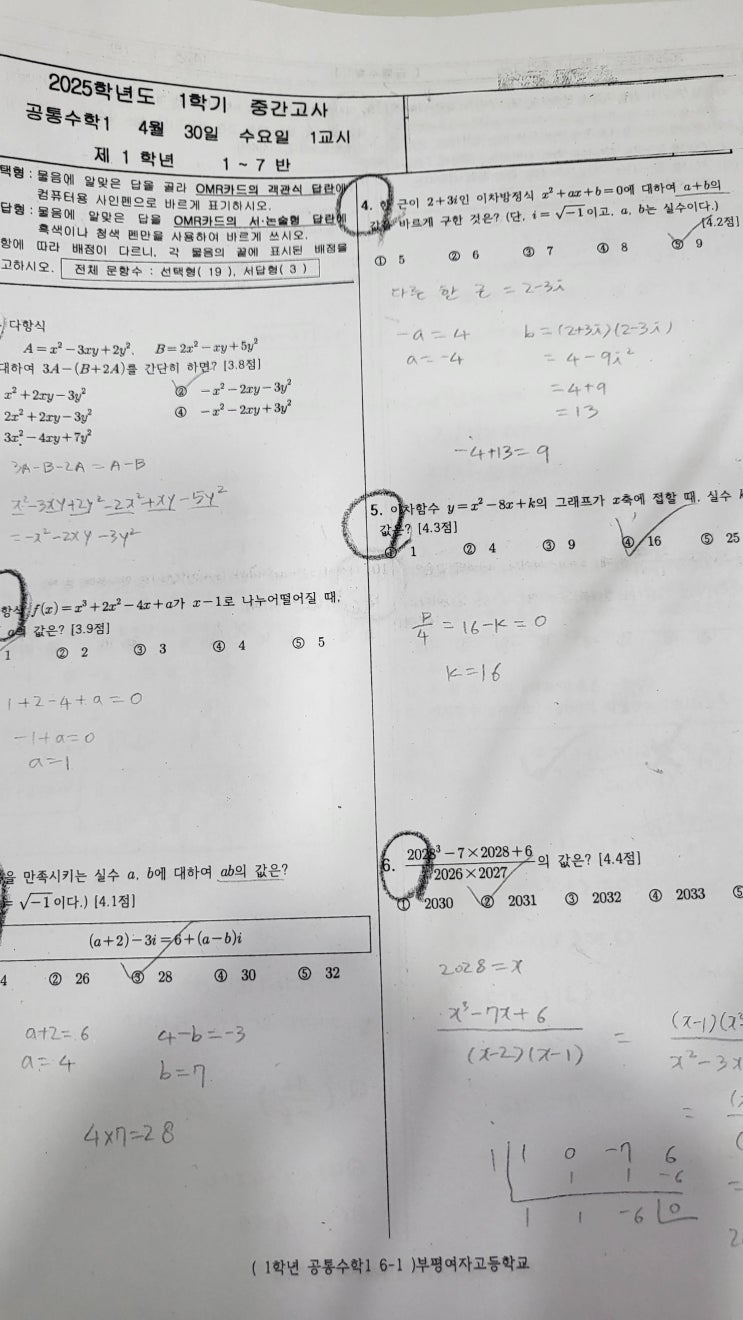 2025학년도 1학기 중간고사
공통수학1 4월 30일 수요일 1교시
제 1 학년 1 ~ 7 반
택형 : 물음에 알맞은 답을 골라 OMR카드의 객관식 답란에
컴퓨터용 사인펜으로 바르게 표기하시오.
답형 : 물음에 알맞은 답을 OMR카드의 서·논술형 답란에
흑색이나 청색 펜만을 사용하여 바르게 쓰시오.
항에 따라 배점이 다르니, 각 물음의 끝에 표시된 배점을
고하시오. 전체 문항수 : 선택형( 19 ), 서답형( 3 )
다항식
A=x²-3xy+2y², B=2x²-xy+5y²
대하여 3A-(B+2A)를 간단히 하면? [3.8점]
x²+2xy-3y² ② -x²-2xy-3y²
2x²+2xy-3y² ④ -x²-2xy+3y²
3x²-4xy+7y²
3A-B-2A = A-B
x²-3xy+2y²-2x²+xy-5y²
=-x²-2xy-3y²
항식 f(x)=x³+2x²-4x+a가 x-1로 나누어떨어질 때,
a의 값은? [3.9점]
1 ② 2 ③ 3 ④ 4 ⑤ 5
1+2-4+a=0
-1+a=0
a=1
을 만족시키는 실수 a, b에 대하여 ab의 값은?
= √-1이다.) [4.1점]
(a+2)-3i=6+(a-b)i
4 ② 26 ③ 28 ④ 30 ⑤ 32
a+2=6 4-b=-3
a=4 b=7
4×7=28
4. 한 근이 2+3i인 이차방정식 x²+ax+b=0에 대하여 a+b의
값을 바르게 구한 것은? (단, i=√-1이고, a, b는 실수이다.)
[4.2점]
① 5 ② 6 ③ 7 ④ 8 ⑤ 9
다른 한 근 = 2-3i
-a=4 b=(2+3i)(2-3i)
a=-4 =4-9i²
=4+9
=13
-4+13=9
5. 이차함수 y=x²-8x+k의 그래프가 x축에 접할 때, 실수 k
값은? [4.3점]
① 1 ② 4 ③ 9 ④ 16 ⑤ 25
D/4=16-k=0
k=16
6. (2028³-7×2028+6)/(2026×2027)의 값은? [4.4점]
① 2030 ② 2031 ③ 2032 ④ 2033 ⑤
2028=x
x³-7x+6 (x-1)(x
(x-2)(x-1) = x²-3x
=
1 1 0 -7 6
1 1 -6
1 1 -6 0
( 1학년 공통수학1 6-1 )부평여자고등학교